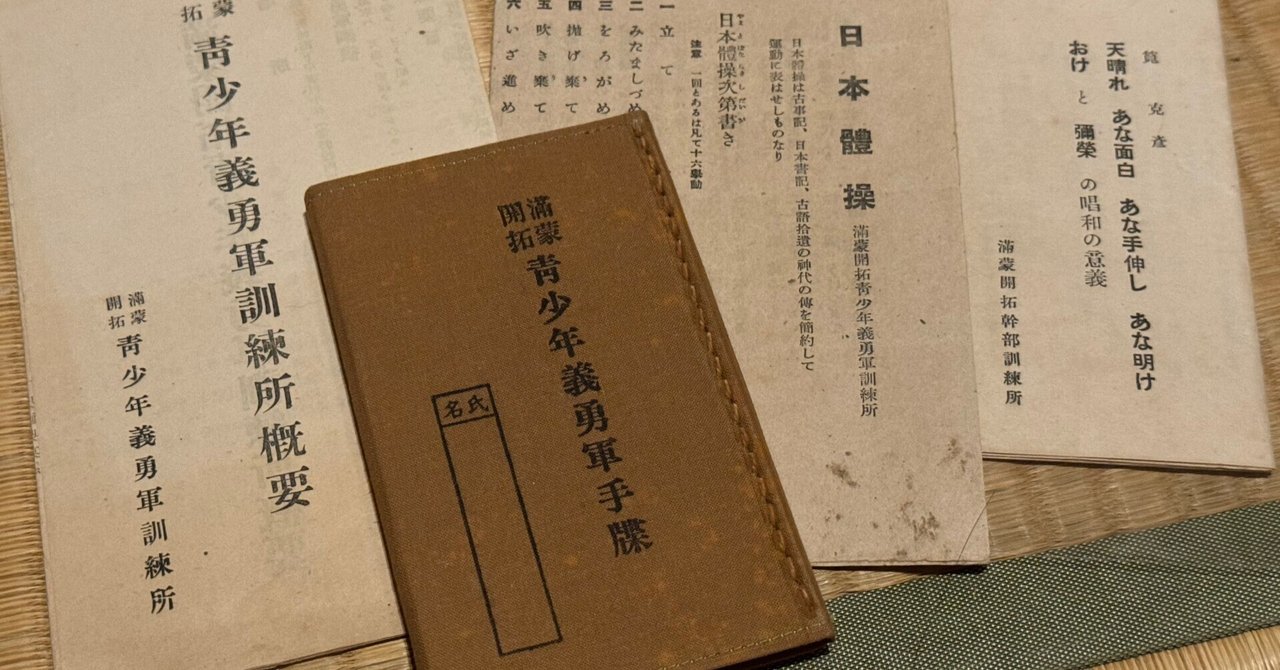 滿蒙
開拓
靑少年義勇軍手牒
氏名
蒙
拓
靑少年義勇軍訓練所槪要
滿蒙
開拓
靑少年義勇軍訓練所
日本體操
滿蒙開拓靑少年義勇軍訓練所
日本體操は古事記、日本書記、古語拾遺の神代の傳を簡約して
運動に表はせしものなり
日本體操次第書き
注意 一回とあるは凡て十六擧動
一 立て
二 みたましづめ
三 をろがめ
四 拋げ棄て
五 吹き棄て
六 いざ進め
筧克彥
天晴れ あな面白 あな手伸し あな明け
おけ と 彌榮 の唱和の意義
滿蒙開拓幹部訓練所